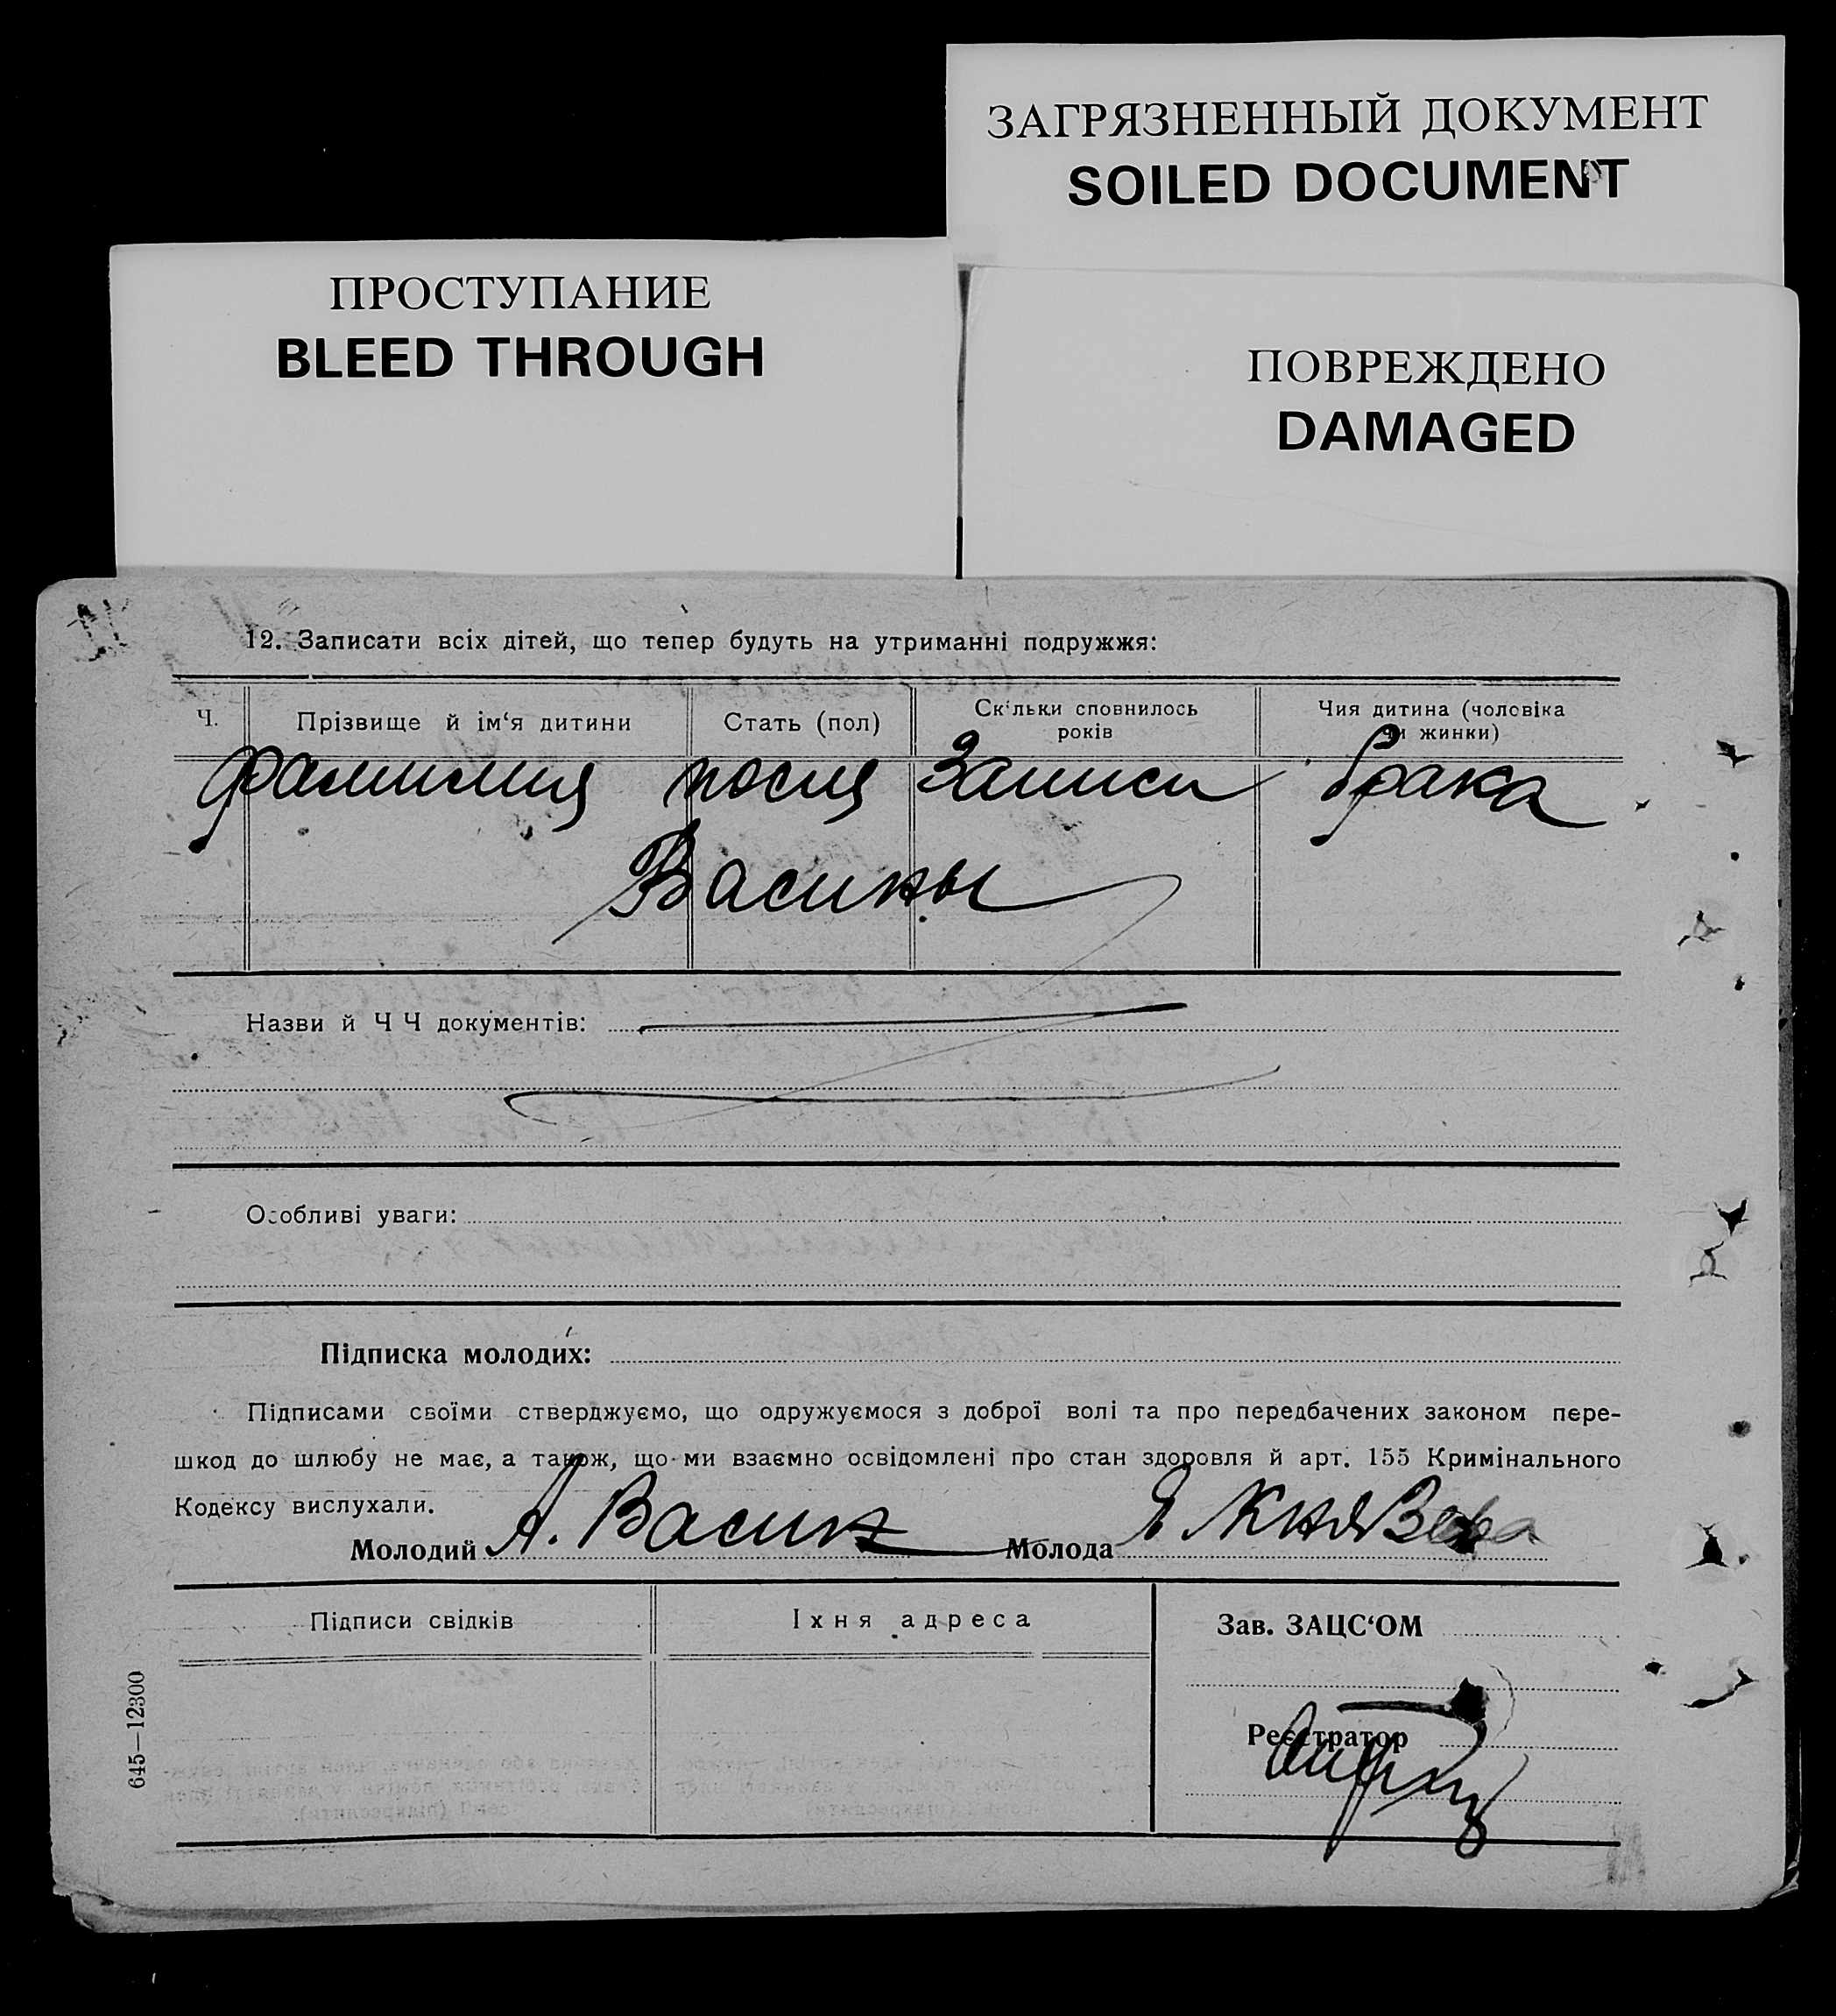 ЗАГРЯЗНЕННЫЙ ДОКУМЕНТ
SOILED DOCUMENT
ПРОСТУПАНИЕ
BLEED THROUGH
ПОВРЕЖДЕНО
DAMAGED
12. Записати всіх дітей, що тепер будуть на утриманні подружжя:
Ч. Прізвище й ім‘я дитини Стать (пол) Скільки сповнилось років Чия дитина (чоловіка чи жинки)
Фамилия после Записи брака
Васины
Назви й Ч Ч документів:
Особливі уваги:
Підписка молодих:
Підписами своїми стверджуємо, що одружуємося з доброї волі та про передбачених законом пере-
шкод до шлюбу не має, а також, що ми взаємно освідомлені про стан здоровля й арт. 155 Кримінального
Кодексу вислухали.
Молодий А. Васин Молода Я Князева
Підписи свідків Їхня адреса Зав. ЗАЦС‘ОМ
Реєстратор
645—12300